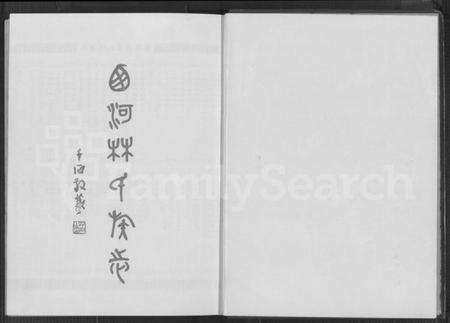 西河林氏族志
FamilySearch